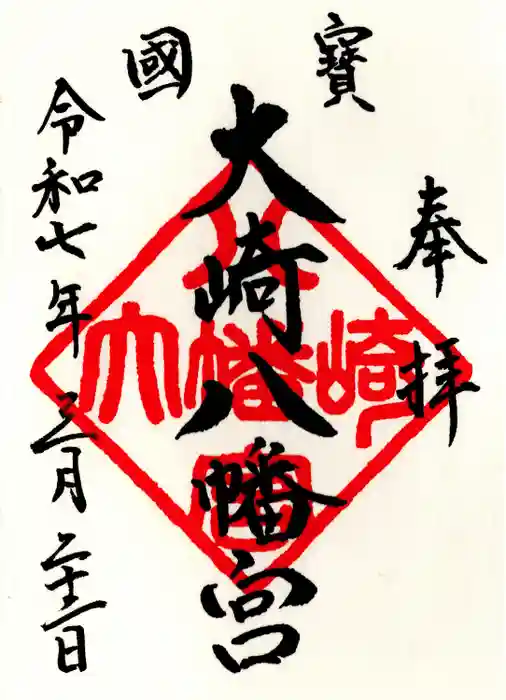 國寶
奉拝
大崎八幡宮
令和七年三月二十二日
大崎八幡宮